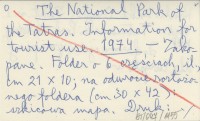 The National Park of
the Tatras. Information for
tourist use. 1974. — Zako-
pane. Folder o 6 częściach, il.,
cm 21 x 10; na odwrocie rozłożo-
nego foldera (cm 30 x 42)
szkicowa mapa. Druk: